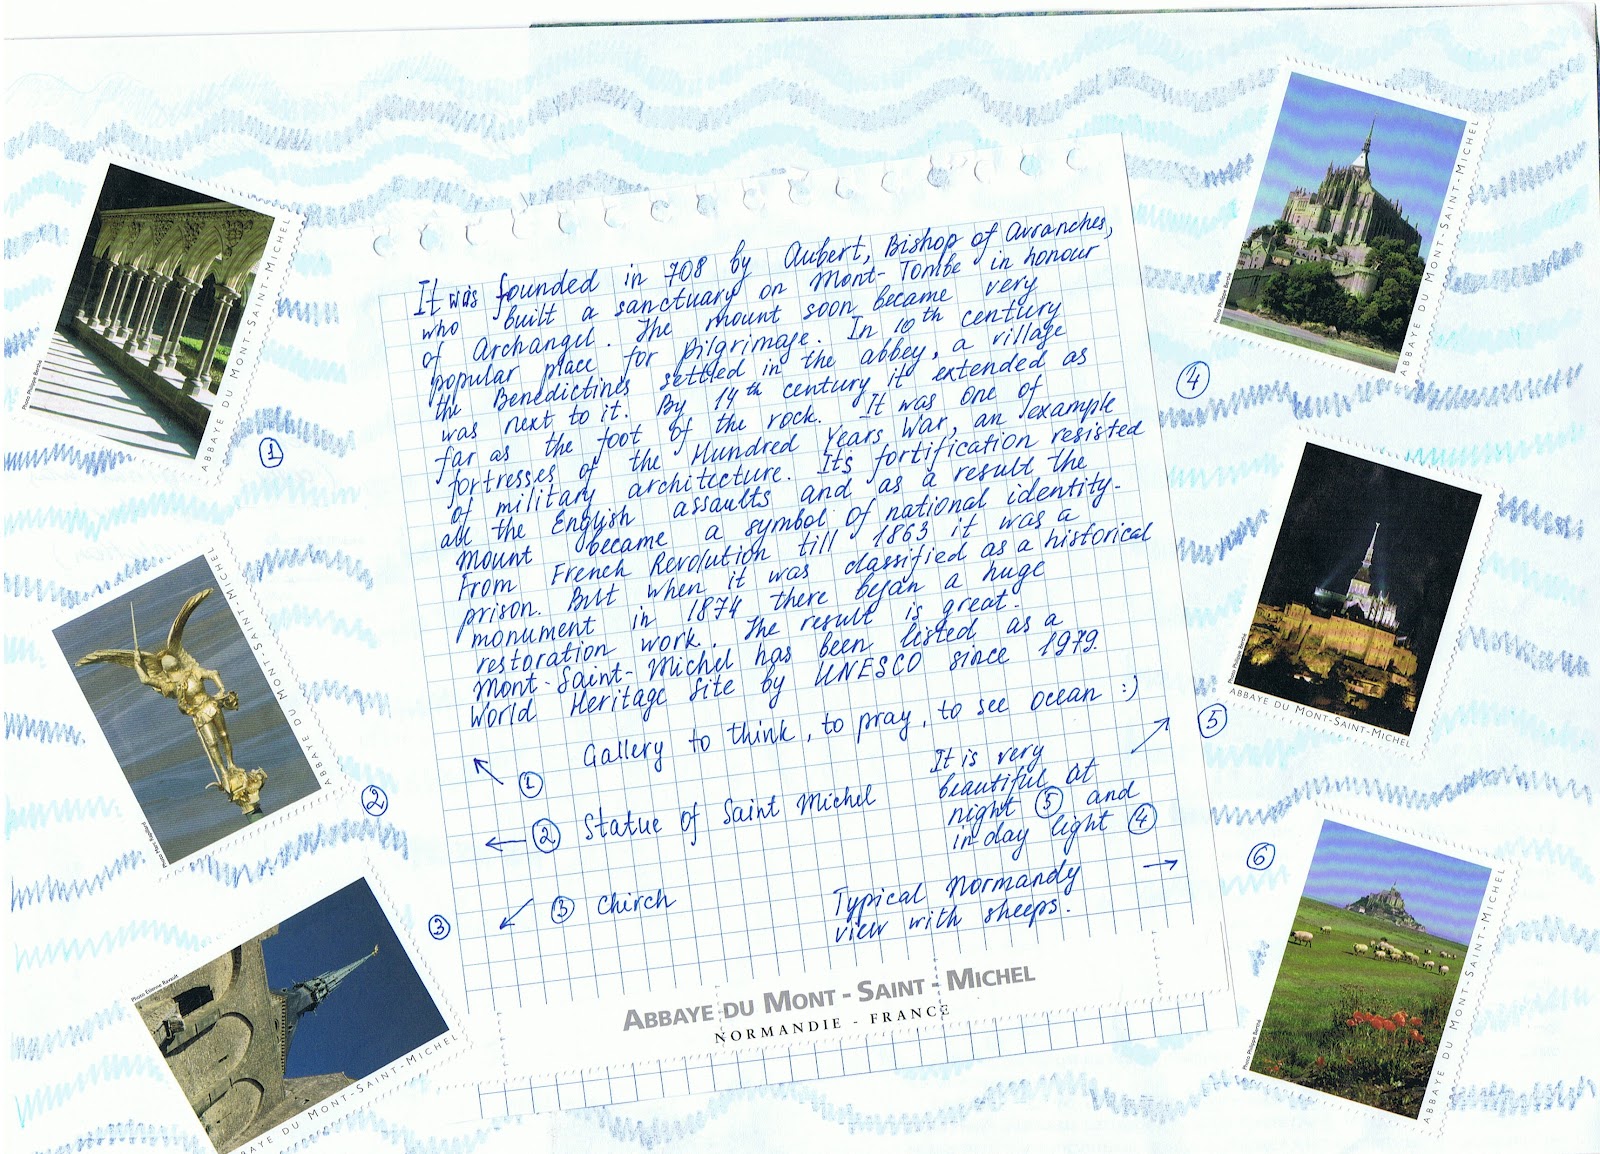 It was founded in 708 by Aubert, Bishop of Avranches,
who built a sanctuary on Mont-Tombe in honour
of Archangel. The mount soon became very
popular place for pilgrimage. In 10th century
the Benedictines settled in the abbey, a village
was next to it. By 14th century it extended as
far as the foot of the rock. It was one of
fortresses of the Hundred Years War, an example
of military architecture. Its fortification resisted
all the English assaults and as a result the
mount became a symbol of national identity.
From French Revolution till 1863 it was a
prison. But when it was classified as a historical
monument in 1874 there began a huge
restoration work. The result is great.
Mont-Saint-Michel has been listed as a
World Heritage Site by UNESCO since 1979.
Gallery to think, to pray, to see ocean :)
1
2 Statue of Saint Michel
3 Chirch
It is very
beautiful at
night 5 and
in day light 4
Typical Normandy
view with sheeps.
ABBAYE DU MONT-SAINT-MICHEL
NORMANDIE - FRANCE
ABBAYE DU MONT-SAINT-MICHEL
Photo Philippe Berthé
1
ABBAYE DU MONT-SAINT-MICHEL
2
ABBAYE DU MONT-SAINT-MICHEL
Photo Etienne Ravoult
3
ABBAYE DU MONT-SAINT-MICHEL
Photo Philippe Berthé
4
ABBAYE DU MONT-SAINT-MICHEL
Photo Philippe Berthé
5
ABBAYE DU MONT-SAINT-MICHEL
Photo Philippe Berthé
6